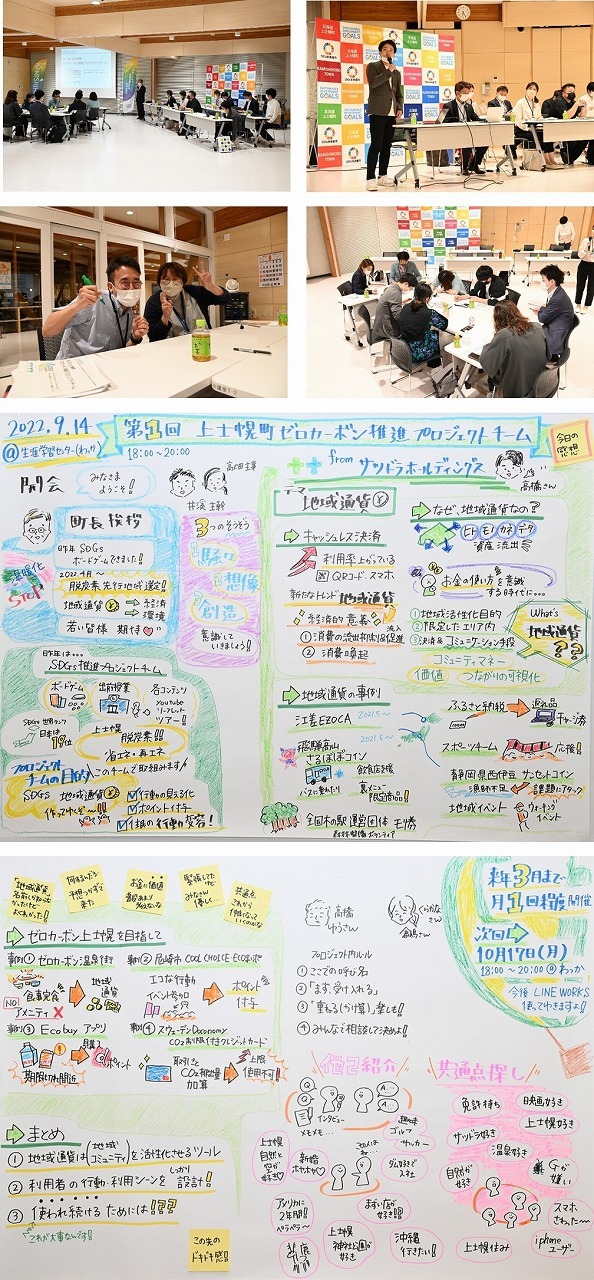 北海道
上士幌町
KAMISHIHORO
TOWN
SUSTAINABLE
DEVELOPMENT
GOALS
2022.9.14
@生涯学習センター(わっか)
第1回 上士幌町ゼロカーボン推進プロジェクトチーム
18:00~20:00
from サツドラホールディングス
今日の
感想
高橋さん
開会
みなさま
ようこそ!
町長挨拶
昨年 SDGs
ボードゲームできました!
2022.4月~
脱炭素先行地域選定!
地域通貨
経済
環境
若い皆様 期待
STEP
3つのそうぞう
1 騒々
2 想像
3 創造
意識して
いきましょう!
昨年は…
SDGs推進プロジェクトチーム
ボードゲーム
出前授業
各コンテンツ
youtube
リーフレット
ツアー!
SDGs世界ランク
日本は
19位
上士幌
脱炭素!!
省エネ・再エネ
プロジェクト
チームの目的
このチームで取組みます
SDGs 地域通貨
作ってゆくぞー!!!
行動の見える化
ポイント付与
住民の行動変容!
テーマ
地域通貨
キャッシュレス決済
利用率上がっている
QRコード、スマホ
新たなトレンド 地域通貨
経済的意義
流入
①消費の流出抑制&促進
②消費喚起
なぜ、地域通貨なの?
ヒト モノ カネ データ
資産流出
お金の使い方を意識
する時代に…
①地域活性化目的
②限定したエリア内
③決済&コミュニケーション手段
コミュニティマネー
価値
つながりの可視化
What's
地域通貨
??
地域通貨の事例
江差EZOCA
飛騨高山
さるぼぼコイン
バスに乗れたり
飲食店支援
裏メニュー
限定商品!
全国木の駅運営団体 モリ券
森林整備 ボランティア
ふるさと納税
返礼品
チャージ券
スポーツチーム
応援!
静岡県西伊豆 サンセットコイン
漁師不足
課題にアタック
地域イベント
ウォーキング
イベント
「地域通貨」
何するんだろ
予想つかずで
来た
お金に価値
緊張してた
けど
みなさん
優しい…
共通点
これから
ゼロカーボン上士幌を目指して
事例① ゼロカーボン温泉街
食事完食
NO
アメニティ
地域
通貨
事例② 尼崎市 COOL CHOICE ECOポ
エコな行動
イベント参加
ポイント
付与
事例③ Eco buy アプリ
購入
ポイント
期限切れ間近
事例④ スウェーデン Doconomy
CO2制限付きクレジットカード
取引ごと
CO2相当量
加算
上限
使用不可!
まとめ
①地域通貨は(地域コミュニティ)を活性化させるツール
②利用者の行動・利用シーンをしっかり設計!
③使われ続けるためには!??
これが大事なんです!
この先の
ドキドキ感!
高橋
ゆうさん
くらかなさん
プロジェクト内ルール
①ここでの呼び名
②「まず、受け入れる」
③「重ねる(かけ算)」楽しも!
④みんなで相談して決めよ!
来年3月まで
月1回程度 開催
次回
10月17日(月)
18:00~20:00 @わっか
今後 LINE WORKS
使ってゆきますよ!
他己紹介
インタビュー
メモメモ…
趣味
ゴルフ
サッカー
上士幌
自然と
空が
好き
新婚
ホヤホヤ
ダム好きで
入社
アメリカに
2年間!
ペラペラ~
まずい店が
好き!?
上士幌
神社公園が
好き
沖縄
行きたい!
共通点探し
免許持ち
映画好き
サツドラ好き
上士幌好き
温泉好き
自然が
好き
Gが
嫌い
スマホ
さわった~
上士幌住み
iphone
ユーザー